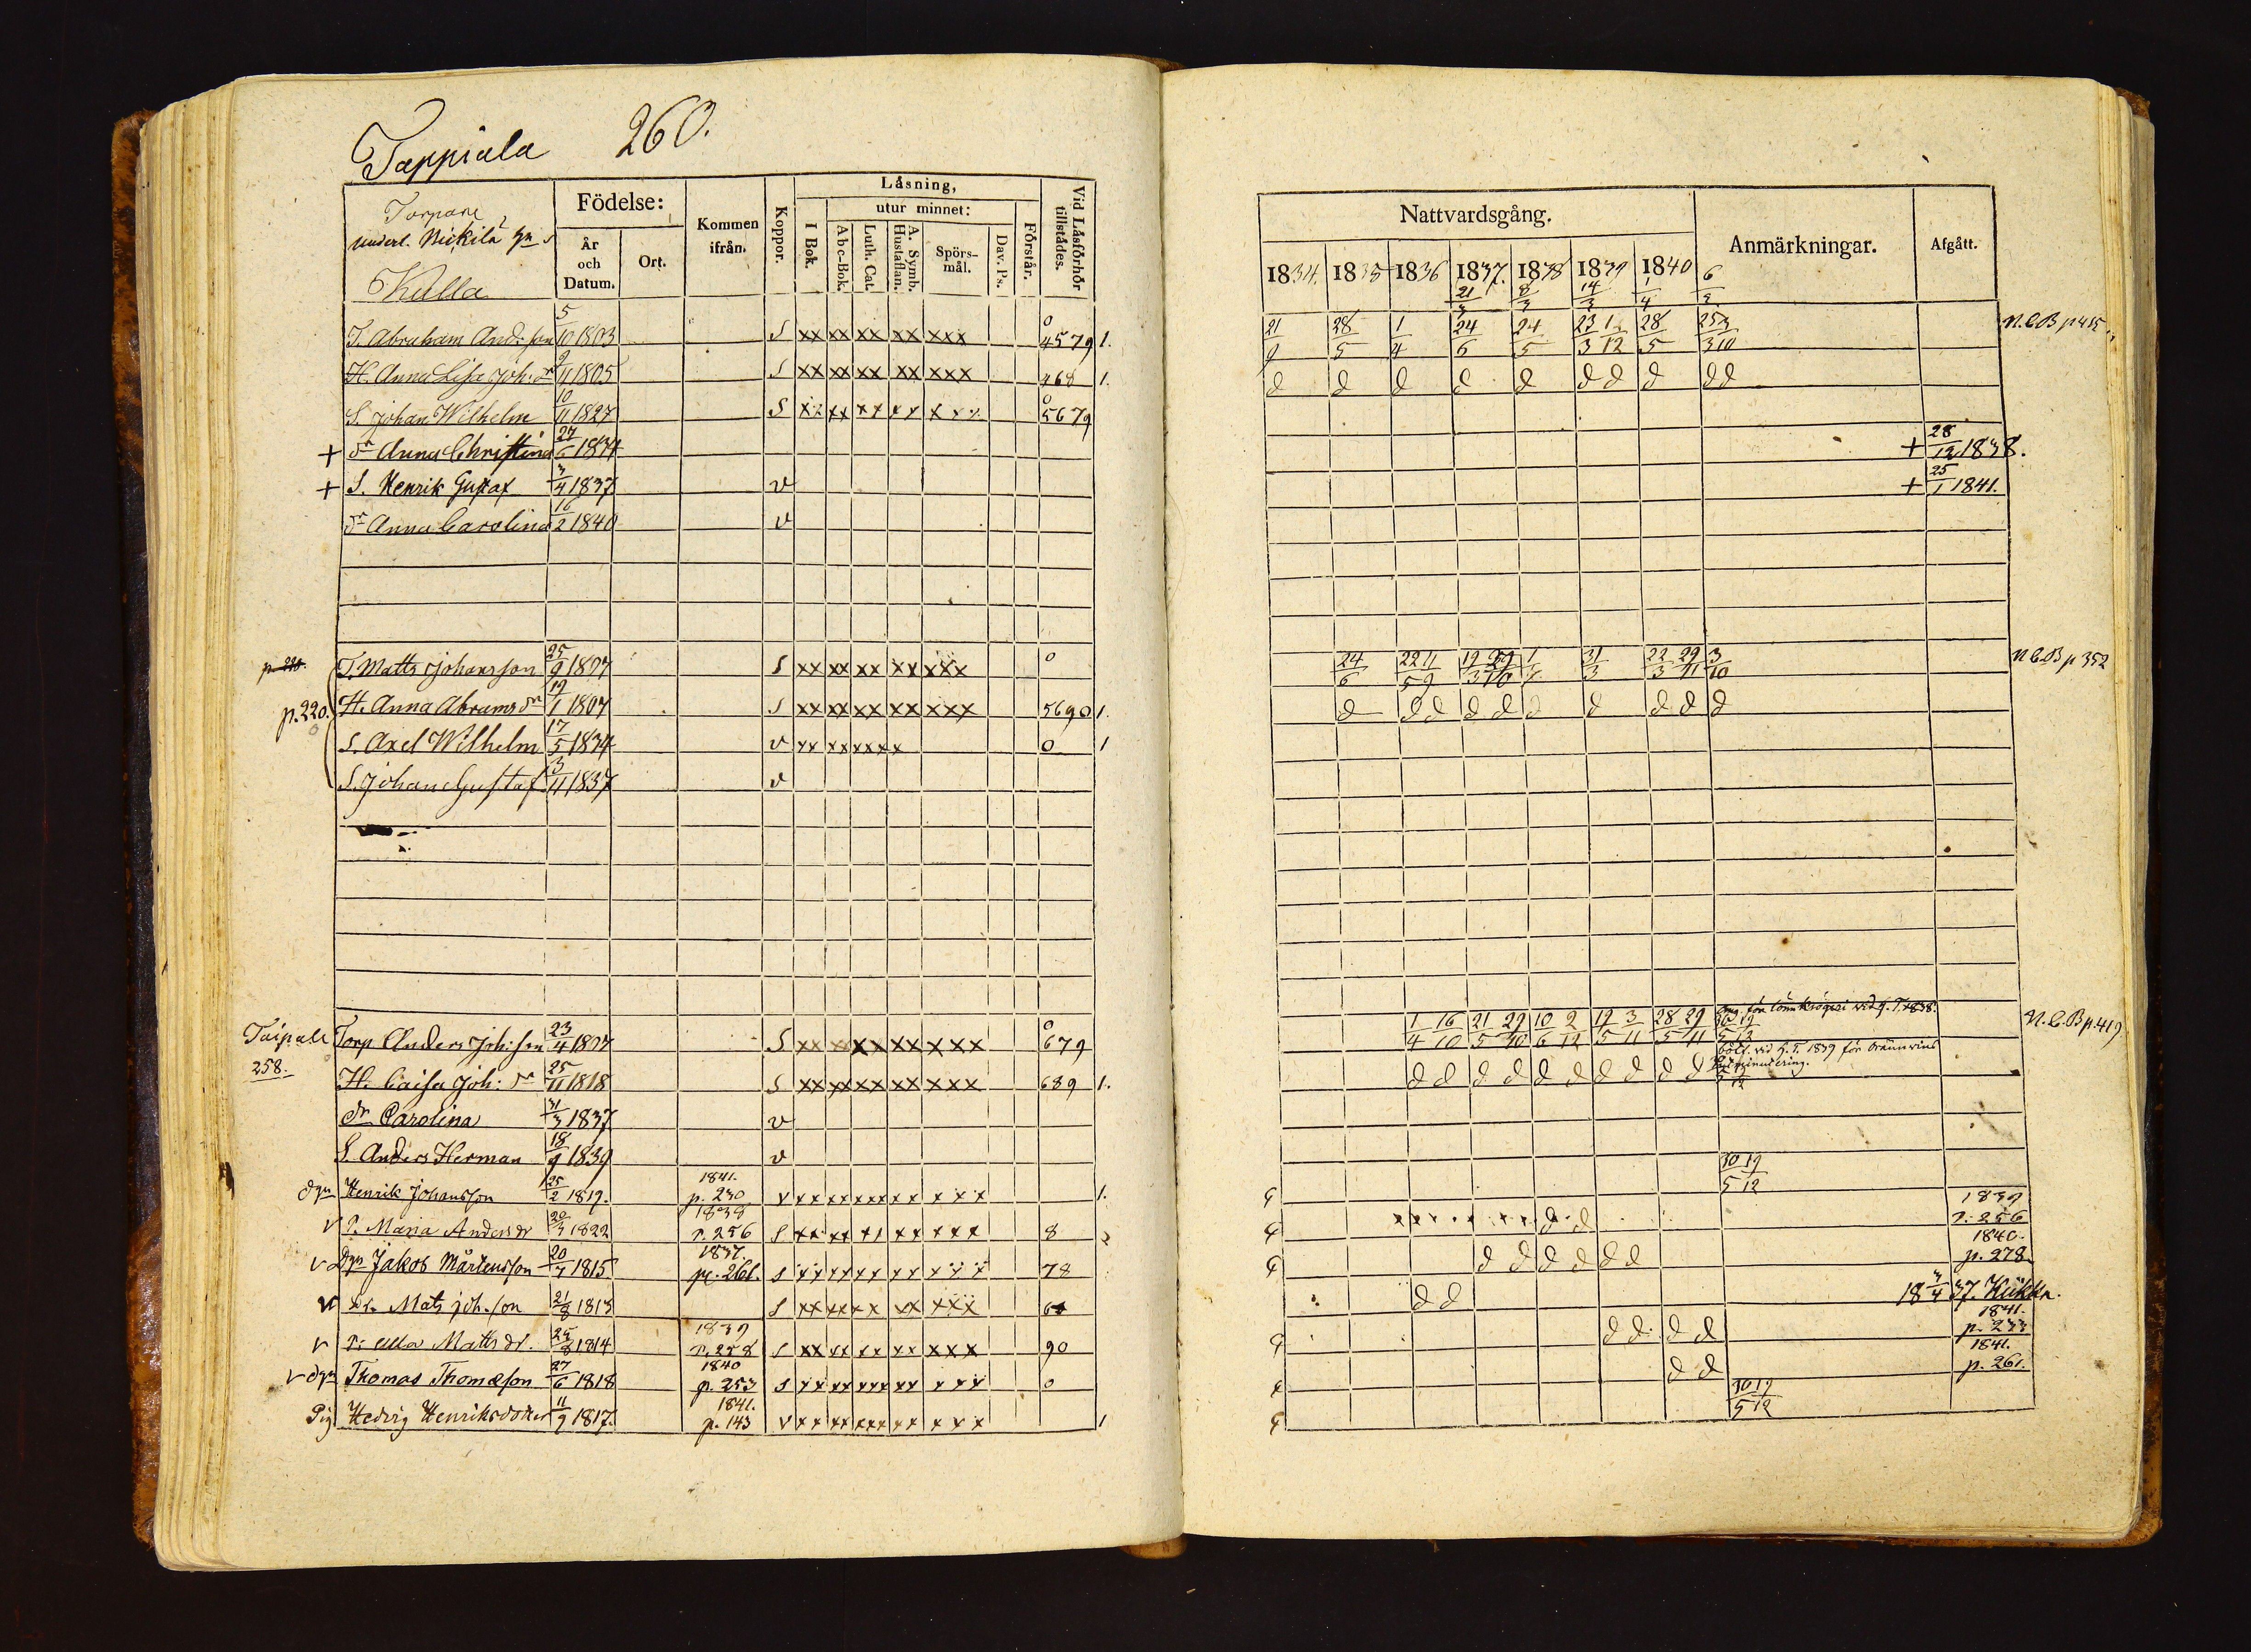 Tappiala 260.
Torpare
underl. Nickilä
Kulla
Födelse:
År
och
Datum.
Ort.
Kommen
ifrån.
Koppor.
Låsning,
I Bok.
utur minnet:
Abc-Bok.
Luth. Cat.
A. Symb.
Hustaflan.
Spörs-
mål.
Dav. Ps.
Förstår.
Vid Låsförhör
tillstädes.
T. Abraham And:son 5/10 1803 S xx xx xx xx xxx 0 4579 1.
H. Anna Lisa Joh: dr 9/11 1805 S xx xx xx xx xxx 468 1.
S. Johan Wilhelm 10/11 1827 S xx xx xx xx xxx 0 5679
+ dr Anna Christina 27/6 1834
+ S. Henrik Gustaf 3/4 1837 v
dr Anna Carolina 16/2 1840 v
p. 220. T. Matts Johansson 25/9 1807 S xx xx xx xx xxx 0
p. 220. H. Anna Abrams dr 19/1 1807 S xx xx xx xx xxx 5690 1.
S. Axel Wilhelm 17/5 1834 v xx xx xx xx 0 1
S. Johan Gustaf 3/11 1837 v
Taipale Torp Anders Joh:son 23/4 1807 S xx xx xx xx xxx 0 679
258. H. Caisa Joh: dr 25/11 1818 S xx xx xx xx xxx 689 1.
dr Carolina 31/3 1837 v
S. Anders Herman 18/9 1839 v
dgn Henrik Johansson 25/2 1819. 1841. p. 230 v xx xx xxx xx xxx 1.
v P. Maria Anders dr 20/3 1822 1838 p. 256 S xx xx xx xx xxx 8
v Dgn Jakob Mårtensson 20/7 1815 1837. p. 261. S xx xx xx xx xxx 78
v Dr. Mats Joh.son 21/8 1813 S xx xx xx xx xxx
v P: Ulla Matts dr. 25/8 1814 1839 p. 258 S xx xx xx xx xxx 90
v dgn Thomas Thomæson 27/6 1818 1840 p. 253 S xx xx xxx xx xxx 0
Pig Hedvig Henriksdotter 11/9 1817. 1841. p. 143 v xx xx xxx xx xxx 1
Nattvardsgång.
Anmärkningar.
Afgått.
1834. 1835 1836 1837. 1838 1839 1840
21/3 8/3 14/3 1/4
21/9 28/5 1/4 24/6 24/5 23/3 1/12 28/5 N.C.B p 415
d d d d d d d d d d
+ 28/12 1838.
+ 25/1 1841.
24/6 22/5 11/9 31/3 22/3 29/11 3/10 N.C.B p 352
d d d d d d d d d d
1/4 16/10 21/5 29/10 10/6 2/12 19/5 3/11 28/5 29/11 N.C.B p. 419
böt. vid H.T. 1839 för brännvins
d d d d d d d d d d
30/5 19/12
d d 1839 p. 256
d d d d d d 1840. p. 278.
d d 18 3/4 37.
d d d d 1841. p. 233
d d 1841. p. 261.
30/5 19/12